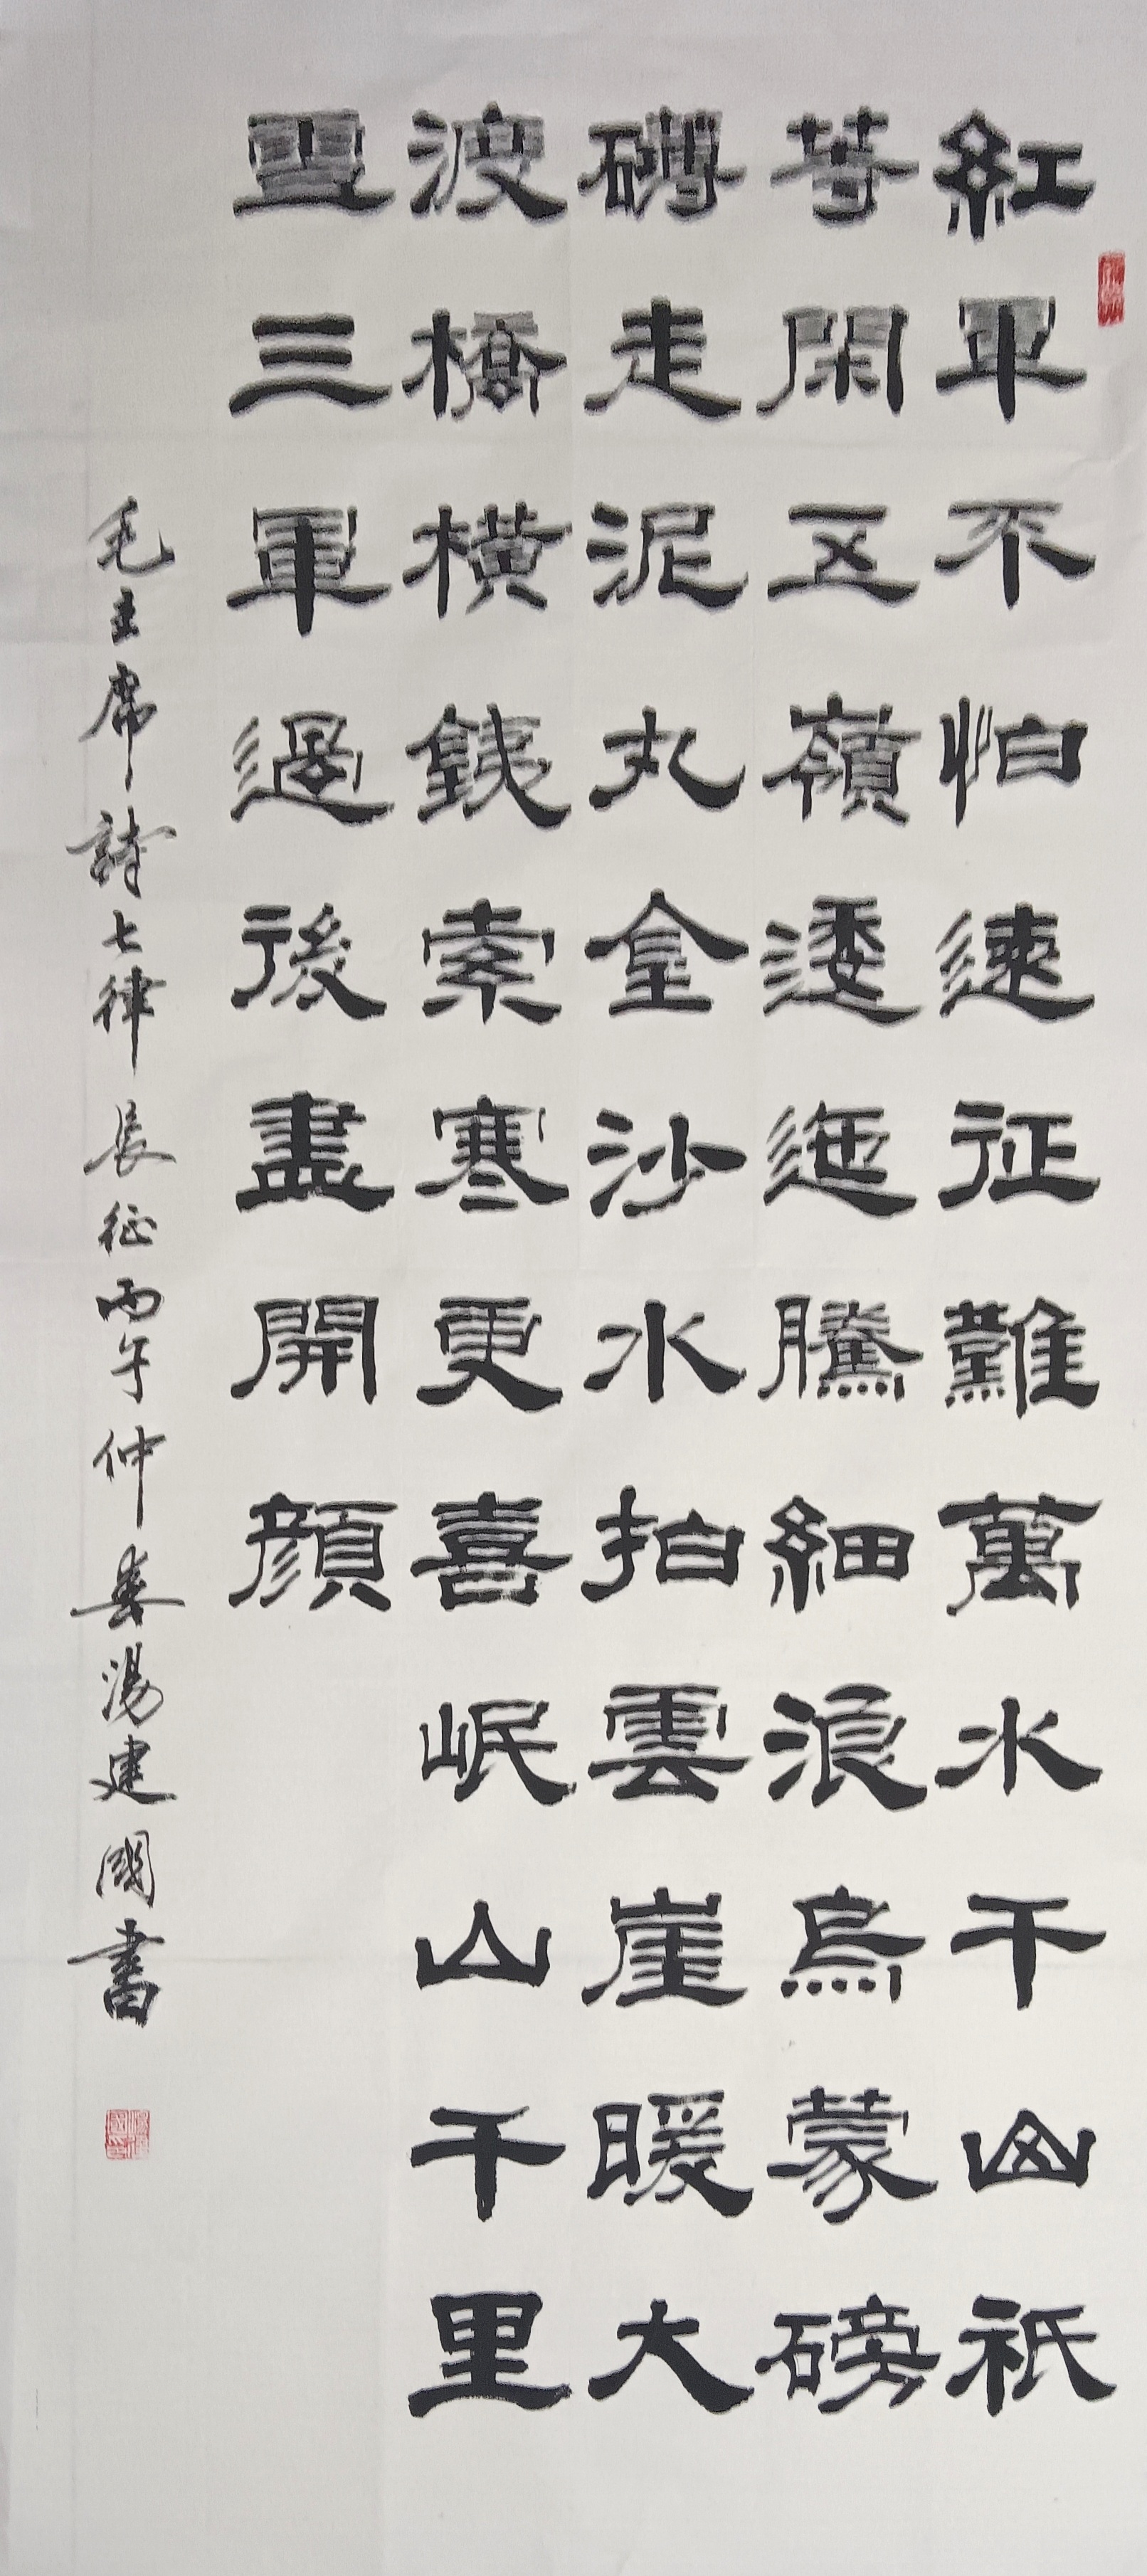 紅軍不怕遠征難萬水千山祇
等閑五嶺逶迤騰細浪烏蒙磅
礴走泥丸金沙水拍雲崖暖大
渡橋橫鐵索寒更喜岷山千里
雪三軍過後盡開顏
毛主席詩七律長征丙午仲春湯建國書